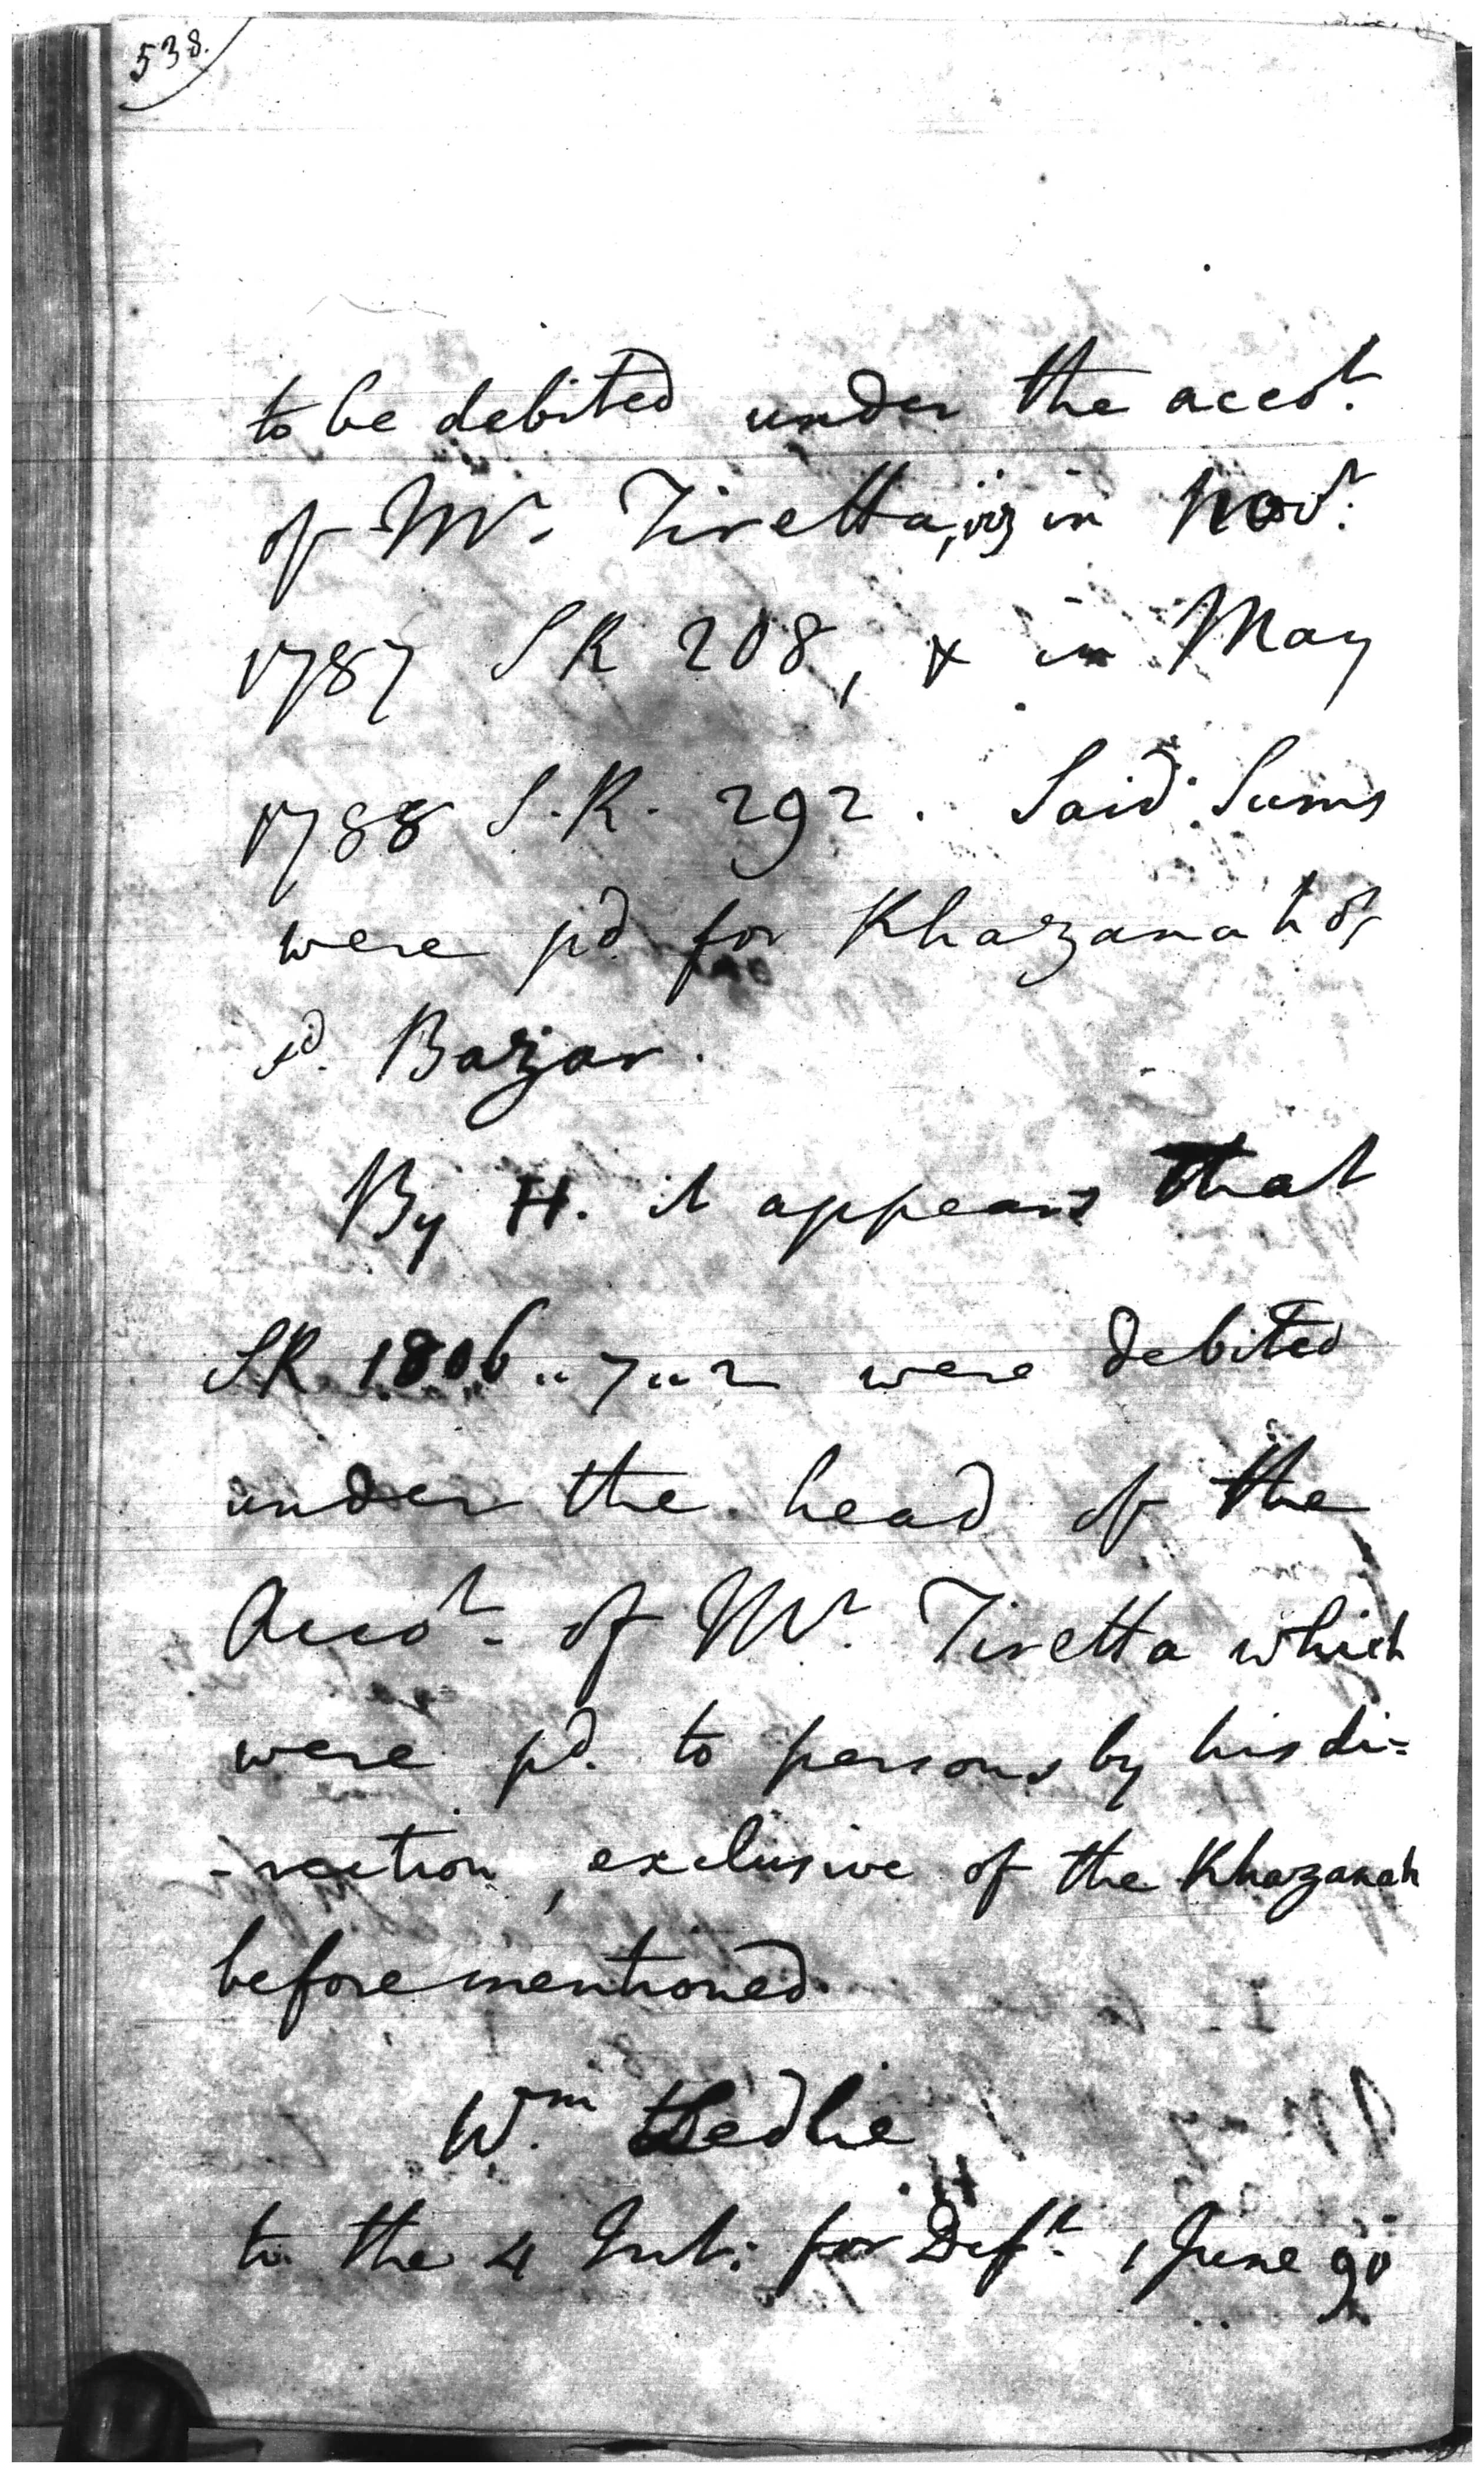 538.
to be debited under the accot.
of Mr. Tiretta, viz in Novr.
1787 SR 208, & in May
1788 S.R. 292. Said Sums
were pd. for Khazanah of
sd. Bazar.
By H. it appears that
SR 1806 " 7 " 2 were debited
under the head of the
Accot. of Mr. Tiretta which
were pd. to persons by his di=
-rection, exclusive of the Khazanah
beforementioned.
Wm. Ledlie
to the 4 Int: for Deft. 1 June 90